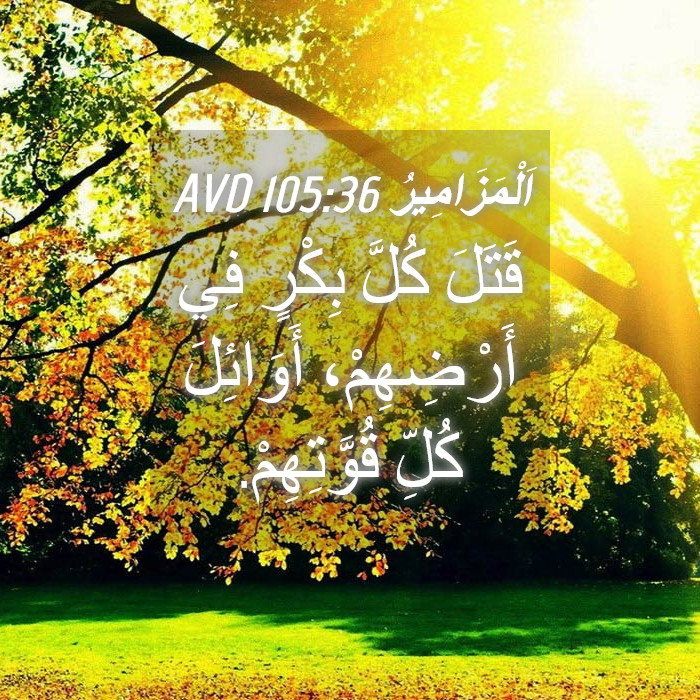 اَلْمَزَامِيرُ 105:36 AVD
قَتَلَ كُلَّ بِكْرٍ فِي
أَرْضِهِمْ، أَوَائِلَ
كُلِّ قُوَّتِهِمْ.